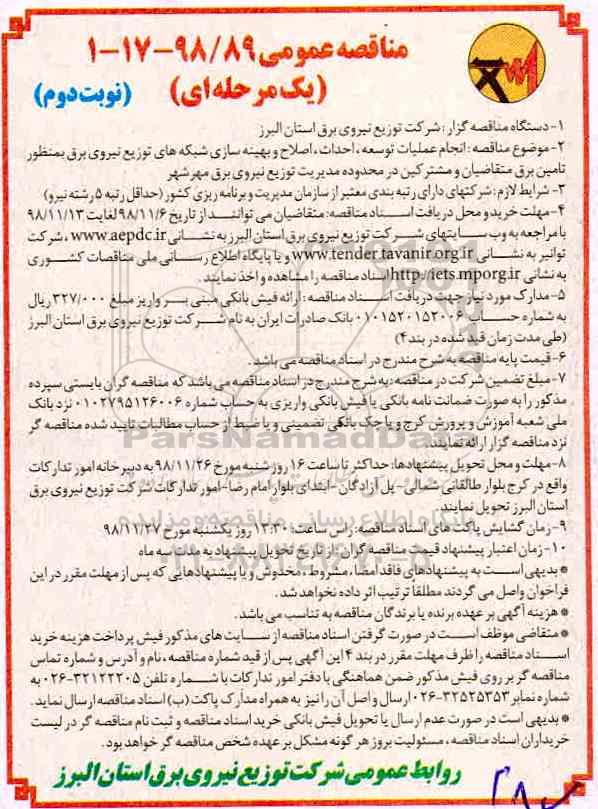 مناقصه عمومی ۹۸/۸۹-۱۷-۱
(یک مرحله ای) (نوبت دوم)
۱- دستگاه مناقصه گزار: شرکت توزیع نیروی برق استان البرز
۲- موضوع مناقصه: انجام عملیات توسعه، احداث، اصلاح و بهینه سازی شبکه های توزیع نیروی برق بمنظور
تامین برق متقاضیان و مشترکین در محدوده مدیریت توزیع نیروی برق مهرشهر
۳- شرایط لازم: شرکتهای دارای رتبه بندی معتبر از سازمان مدیریت و برنامه ریزی کشور (حداقل رتبه ۵ رشته نیرو)
۴- مهلت خرید و محل دریافت اسناد مناقصه: متقاضیان می توانند از تاریخ ۹۸/۱۱/۶ لغایت ۹۸/۱۱/۱۳
با مراجعه به وب سایتهای شرکت توزیع نیروی برق استان البرز به نشانی www.aepdc.ir، شرکت
توانیر به نشانی www.tender.tavanir.org.ir و یا پایگاه اطلاع رسانی ملی مناقصات کشوری
به نشانی http://iets.mporg.ir اسناد مناقصه را مشاهده و اخذ نمایند.
۵- مدارک مورد نیاز جهت دریافت اسناد مناقصه: ارائه فیش بانکی مبنی بر واریز مبلغ ۳۲۷/۰۰۰ ریال
به شماره حساب ۰۱۰۱۵۲۰۱۵۲۰۰۶ بانک صادرات ایران به نام شرکت توزیع نیروی برق استان البرز
(طی مدت زمان قید شده در بند ۴)
۶- قیمت پایه مناقصه به شرح مندرج در اسناد مناقصه می باشد.
۷- مبلغ تضمین شرکت در مناقصه: به شرح مندرج در اسناد مناقصه می باشد که مناقصه گران بایستی سپرده
مذکور را به صورت ضمانت نامه بانکی یا فیش بانکی واریزی به حساب شماره ۰۱۰۲۷۹۵۱۲۶۰۰۶ نزد بانک
ملی شعبه آموزش و پرورش کرج و یا چک بانکی تضمینی و یا ضبط از حساب مطالبات تایید شده مناقصه گر
نزد مناقصه گزار ارائه نمایند.
۸- مهلت و محل تحویل پیشنهادها: حداکثر تا ساعت ۱۶ روز شنبه مورخ ۹۸/۱۱/۲۶ به دبیرخانه امور تدارکات
واقع در کرج بلوار طالقانی شمالی-پل آزادگان-ابتدای بلوار امام رضا-امور تدارکات شرکت توزیع نیروی برق
استان البرز تحویل نمایند.
۹- زمان گشایش پاکت های اسناد مناقصه: راس ساعت: ۱۳:۳۰ روز یکشنبه مورخ ۹۸/۱۱/۲۷
۱۰- زمان اعتبار پیشنهاد قیمت مناقصه گران: از تاریخ تحویل پیشنهاد به مدت سه ماه
* بدیهی است به پیشنهادهای فاقد امضا، مشروط، مخدوش و یا پیشنهادهایی که پس از مهلت مقرر در این
فراخوان واصل می گردند مطلقا ترتیب اثر داده نخواهد شد.
* هزینه آگهی بر عهده برنده یا برندگان مناقصه به تناسب می باشد.
* متقاضی موظف است در صورت گرفتن اسناد مناقصه از سایت های مذکور فیش پرداخت هزینه خرید
اسناد مناقصه را ظرف مهلت مقرر در بند ۴ این آگهی پس از قید شماره مناقصه، نام و آدرس و شماره تماس
مناقصه گر بر روی فیش مذکور ضمن هماهنگی با دفتر امور تدارکات با شماره تلفن ۳۲۱۲۲۲۰۵-۰۲۶ به
شماره نمابر ۳۲۵۲۵۳۵۳-۰۲۶ ارسال و اصل آن را نیز به همراه مدارک پاکت (ب) اسناد مناقصه ارسال نماید.
* بدیهی است در صورت عدم ارسال یا تحویل فیش بانکی خرید اسناد مناقصه و ثبت نام مناقصه گر در لیست
خریداران اسناد مناقصه، مسئولیت بروز هر گونه مشکل بر عهده شخص مناقصه گر خواهد بود.
روابط عمومی شرکت توزیع نیروی برق استان البرز
ParsNamadData